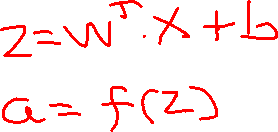 z = w^T · x + b
a = f(z)